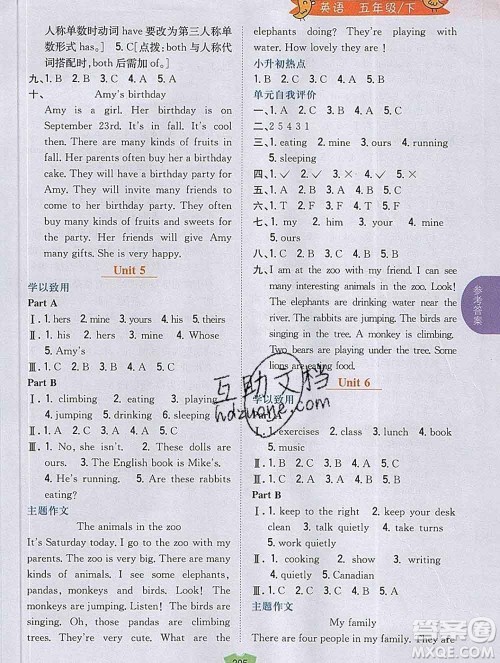 英语 五年级/下
人称单数时动词 have 要改为第三人称单
数形式 has。] 5. C[点拨:both 与人称代
词搭配时,both 后要加 of。]
九、1. B 2. B 3. C 4. A 5. B
十、 Amy's birthday
Amy is a girl. Her birthday is on
September 23rd. It's in fall. It's cool
then. There are many kinds of fruits in
fall. Her parents often buy her a birthday
cake. They will have a birthday party for
Amy. Amy will invite many friends to
come to her birthday party. They will
buy many kinds of fruits and sweets for
the party. Her friends will give Amy
many gifts. She is very happy.
Unit 5
学以致用
Part A
Ⅰ. 1. hers 2. mine 3. yours 4. his 5. theirs
Ⅱ. 1. hers 2. ours 3. his 4. mine 5. Whose
6. Amy's
Ⅲ. 1. A 2. B 3. B 4. A
Part B
Ⅰ. 1. climbing 2. eating 3. playing
4. jumping 5. drinking 6. sleeping
Ⅱ. 1. A 2. C 3. A 4. B 5. C
Ⅲ. 1. No, she isn't. 2. These dolls are
ours. 3. The English book is Mike's.
4. He's running. 5. Are these rabbits
eating?
主题作文
The animals in the zoo
It's Saturday today. I go to the zoo with
my parents. The zoo is very big. There are
many kinds of animals. I see some elephants,
pandas, monkeys and birds. Listen! The
birds are singing. The monkeys are
jumping. They're very cute. What are the
elephants doing? They're playing with
water. How lovely they are!
小升初热点
1. B 2. A 3. C 4. B 5. C
单元自我评价
一、1. A 2. C 3. B 4. C 5. A
二、2 5 4 3 1
三、1. eating 2. mine 3. ours 4. running
5. sleeping
四、1. ✓ 2. ✓ 3. × 4. ✓ 5. ×
五、1. T 2. F 3. T 4. F 5. T
六、1. A 2. A 3. B 4. C 5. C
七、1. B 2. C 3. A 4. B 5. A
八、1. B 2. A 3. C 4. B 5. C
九、I am at the zoo with my friends. I can see
many interesting animals in the zoo. Look!
The elephants are drinking water near the
river. The rabbits are jumping. The birds are
singing in the tree. A monkey is climbing.
Two bears are playing football. Some
lions are eating food.
参考答案
Unit 6
学以致用
Ⅰ. 1. exercises 2. class 3. lunch 4. book
5. music
Ⅲ. 1. C 2. A 3. B 4. A 5. C
Part B
Ⅰ. 1. keep to the right 2. keep your desk
clean 3. take turns 4. talk quietly
5. work quietly
Ⅱ. 1. cooking 2. running 3. something
4. quietly 5. Canadian
Ⅲ. 1. C 2. B 3. A 4. B 5. C
主题作文
My family
There are four people in my family. They are
互助文档
hdzuoye.com
答案圈